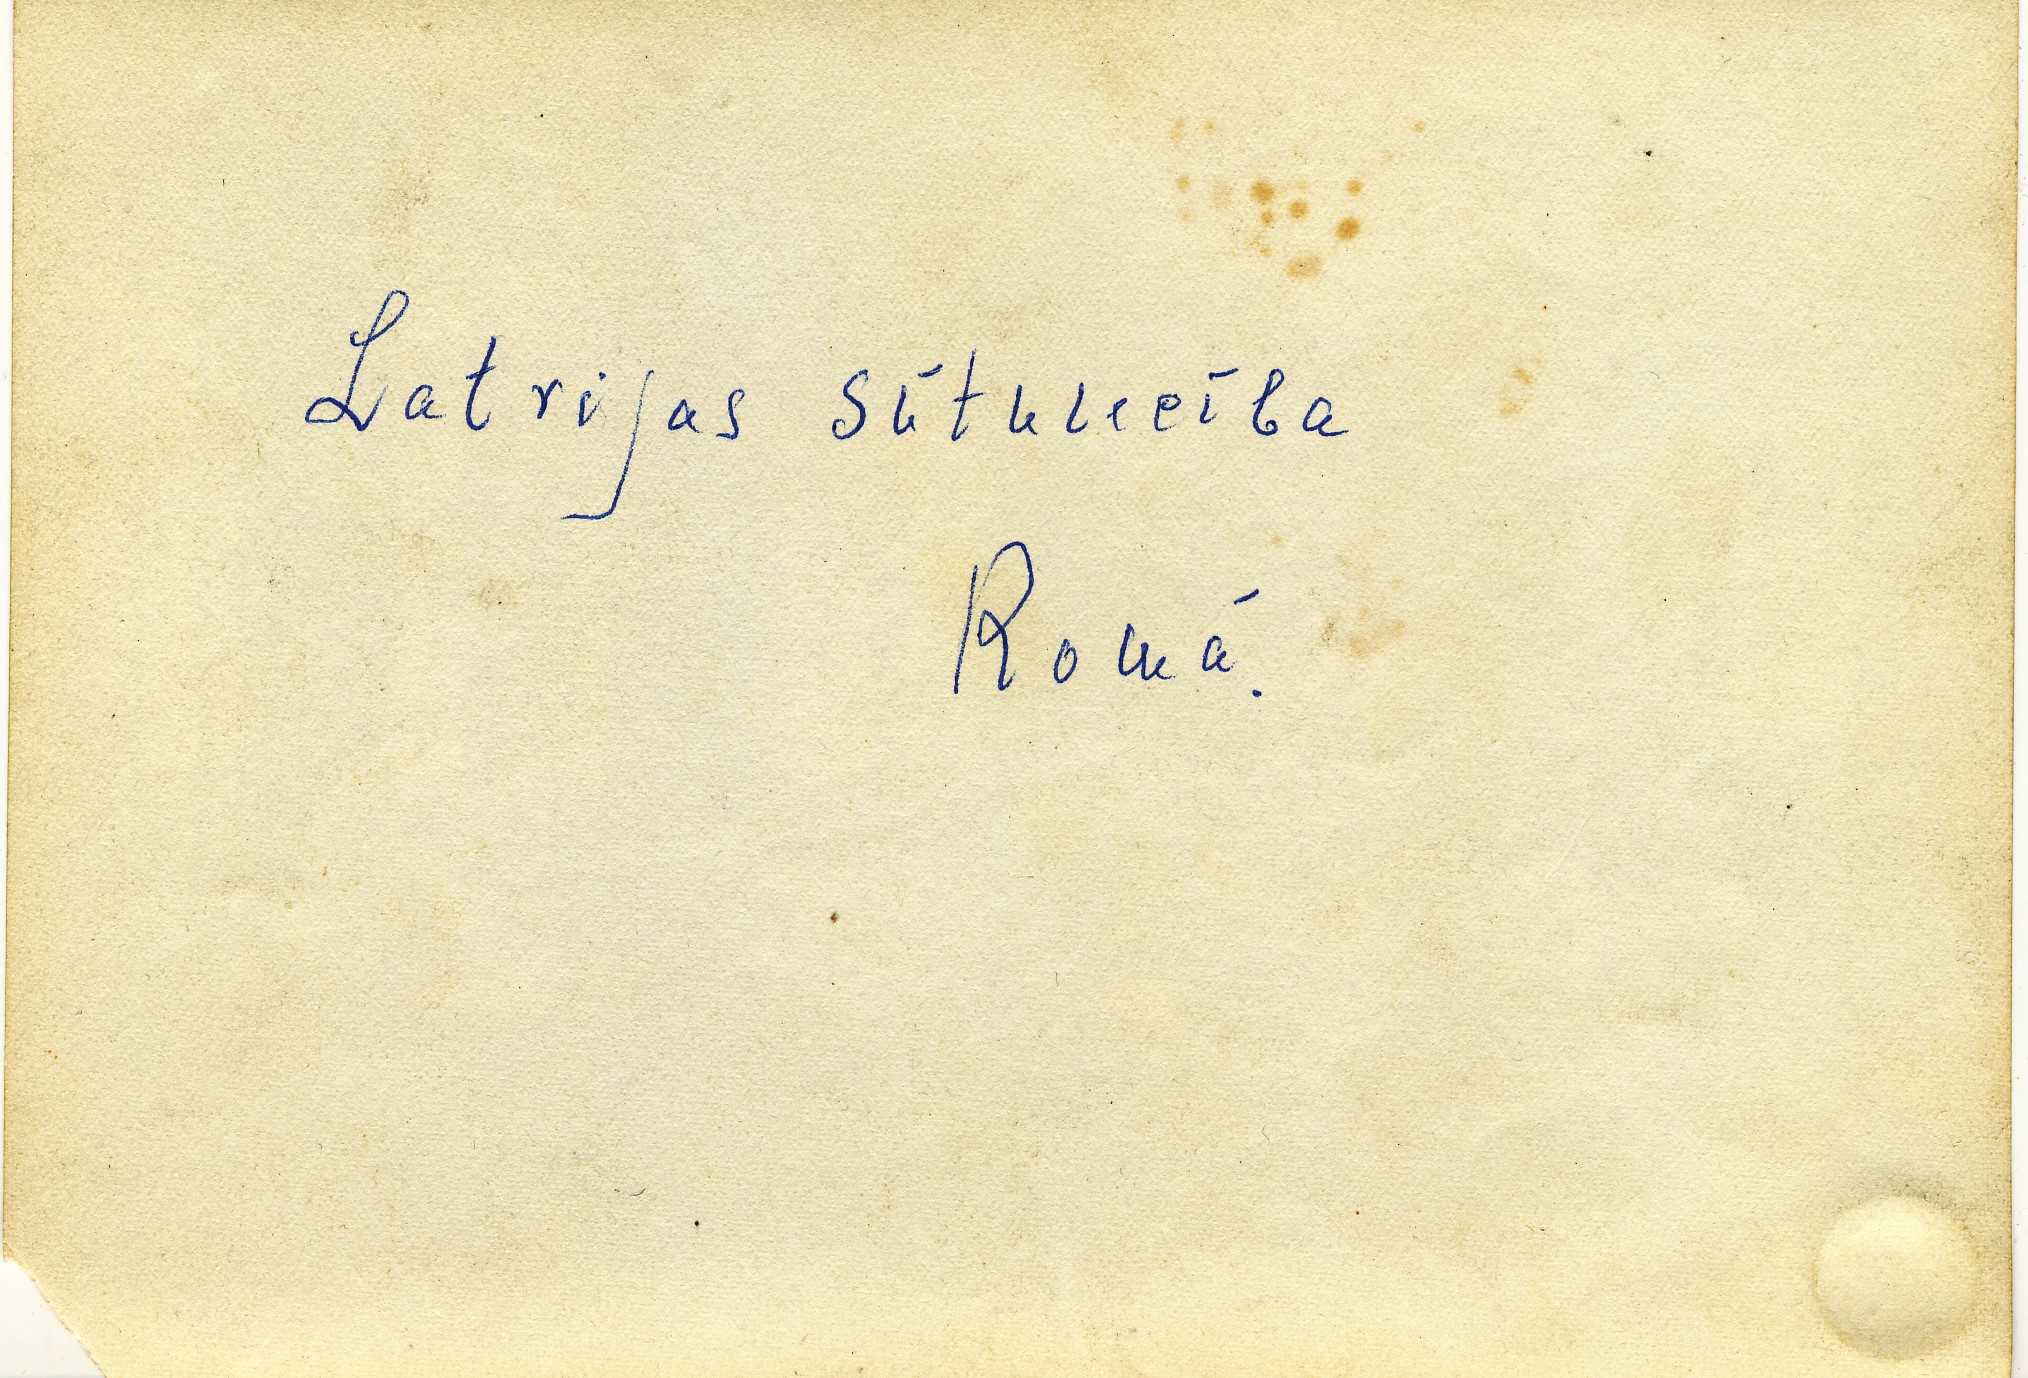 Latvijas sūtniecība
Romā.